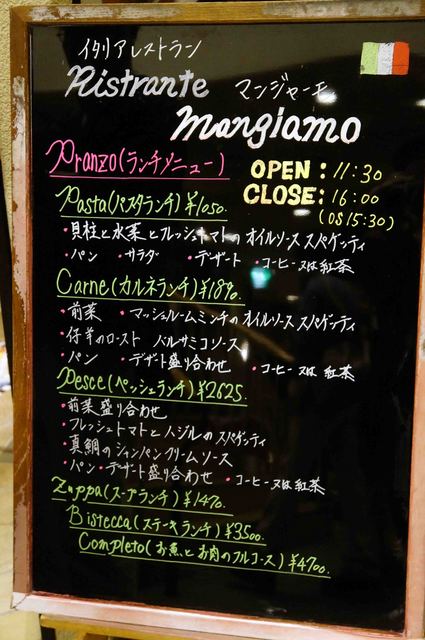 イタリアレストラン
Ristrante マンジャーモ
Mangiamo
Pranzo(ランチメニュー)
OPEN : 11:30
CLOSE : 16:00
(OS 15:30)
Pasta(パスタランチ)¥1050.
・貝柱と水菜とフレッシュトマトのオイルソース スパゲッティ
・パン ・サラダ ・デザート ・コーヒー又は紅茶
Carne(カルネランチ)¥1890.
・前菜 ・マッシュルームミンチのオイルソース スパゲッティ
・仔羊のロースト バルサミコソース
・パン ・デザート盛り合わせ ・コーヒー又は紅茶
Pesce(ペッシェランチ)¥2625.
・前菜盛り合わせ
・フレッシュトマトとバジルのスパゲティ
・真鯛のシャンパンクリームソース
・パン・デザート盛り合わせ ・コーヒー又は紅茶
Zuppa(スープランチ)¥1470.
Bistecca(ステーキランチ)¥3500.
Completo(お魚とお肉のフルコース)¥4700.